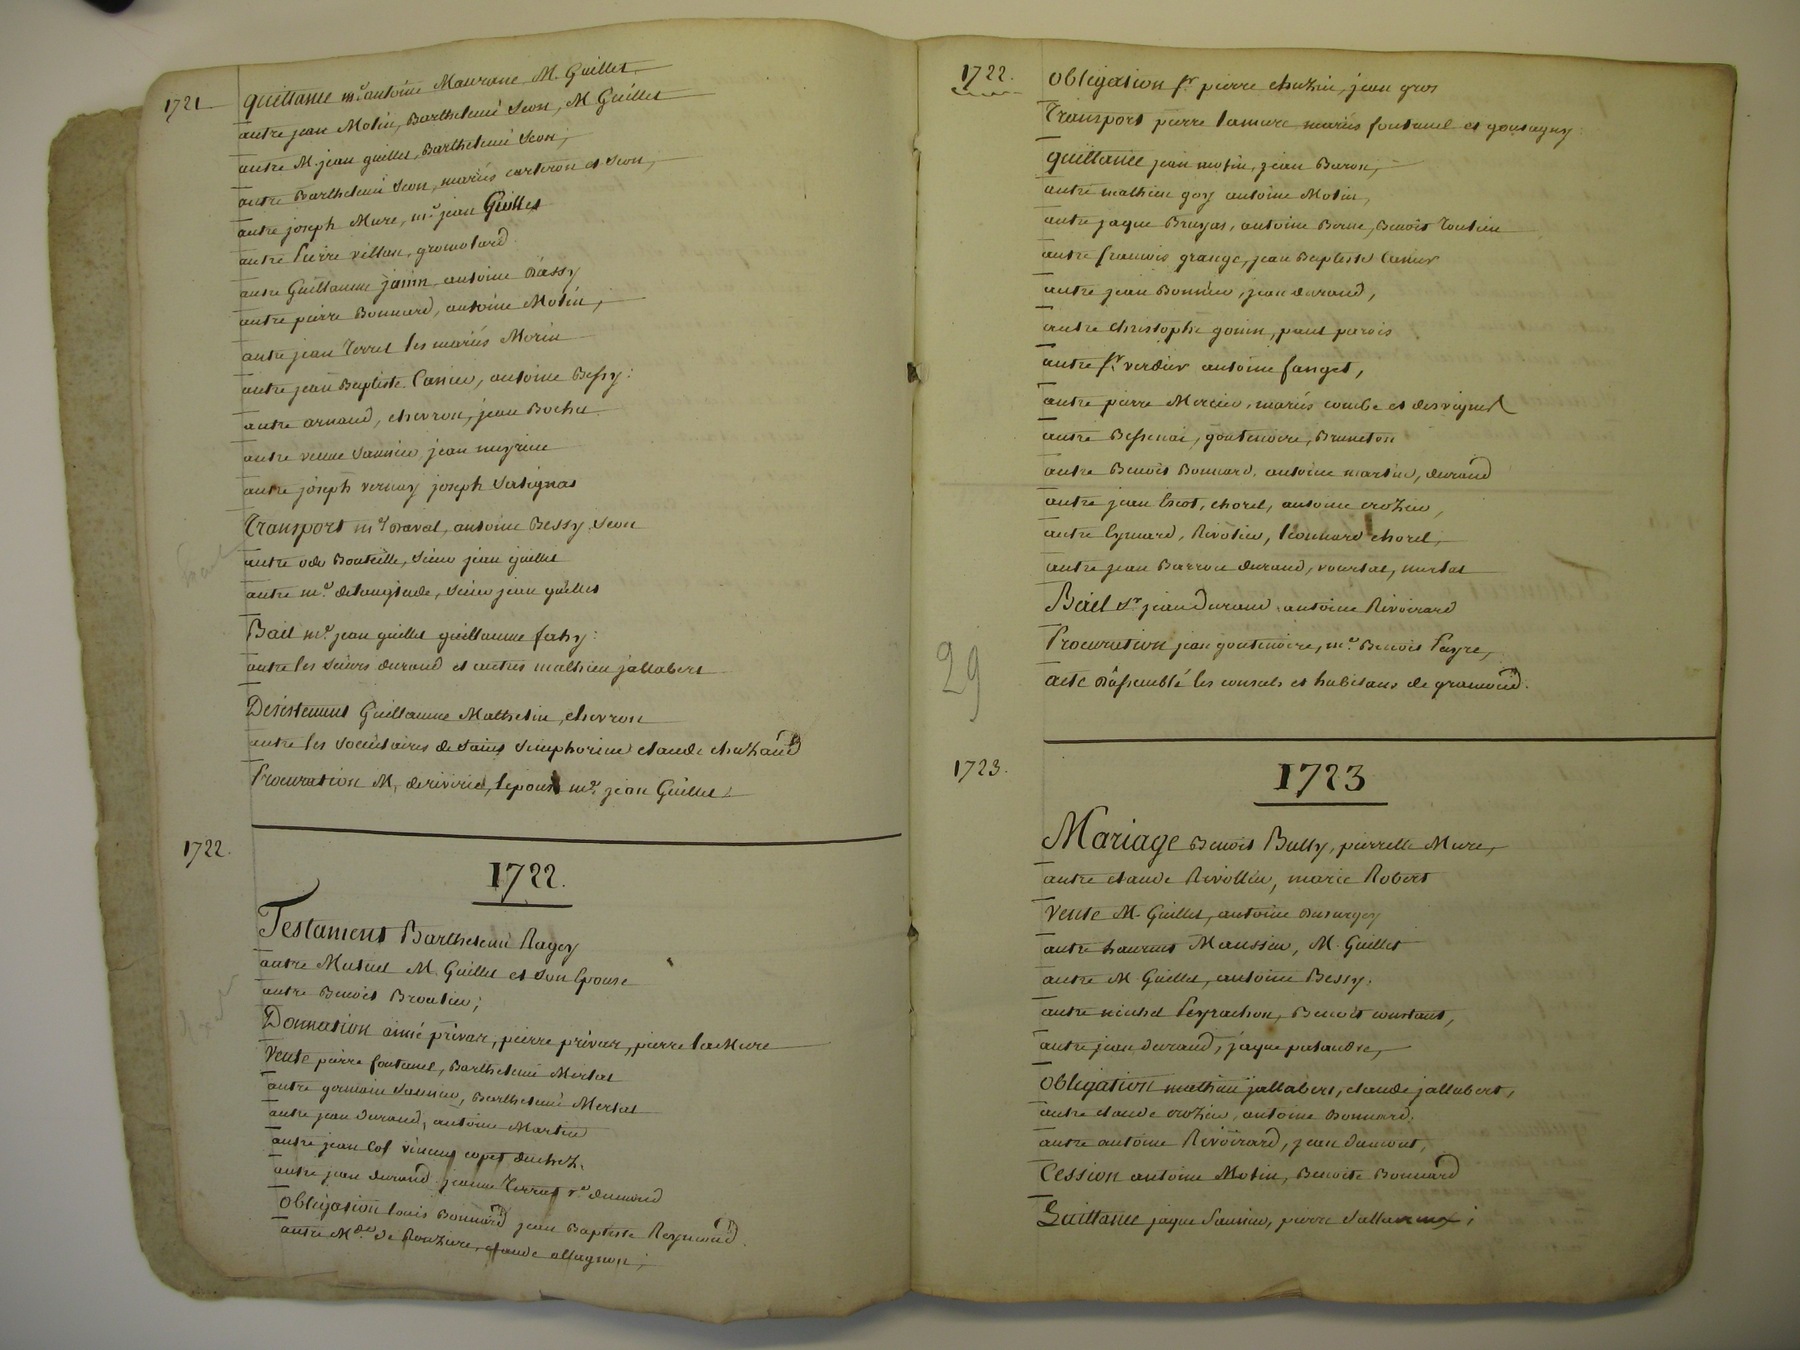 1721
quittance mr antoine Maurane M. Guillet
autre jean Molin, Barthelemi Seon, M Guillet
autre M. jean guillet, Barthelemi Seon,
autre Barthelemi Seon, mariés carteron et Seon,
autre joseph Mure, mr jean Guillet
autre Pierre villan, gromolard
autre Guillaume janin antoine Dassy
autre pierre Bonnard, antoine Molin,
autre jean Terret les mariés Morin
autre jean Baptiste Canier, antoine Bessy:
autre arnaud, chevron, jean Bochu
autre veuve Saunier jean meyrieu
autre joseph vernay joseph Savignas
Transport mr Daval, antoine Bessy Seon
autre Bouteille, Sieur jean guillet
autre mr delanglade, Sieur jean guillet
Bail mr jean guillet guillaume fahy:
autre les Sieurs durand et autres mathieu jallabert
Desistement Guillaume Mathelin, chevron
autre les Societaires de Saint Simphorien claude chazaud
Procuration M. deriverie, lepoux mr jean Guillet
1722.
1722.
Testament Barthelemi Ragey
autre Mutuel M. Guillet et Son Epouse
autre Benoit Broutier;
Donnation aimé privat, pierre privat, pierre la Mure
Vente pierre fontanel, Barthelemi Merlat
autre germain Saunier, Barthelemi Merlat
autre jean Durand, antoine Martin
autre jean Cot vincent copet
autre jean durand jeanne Terrat ve dumond
Obligation louis Bonnard jean Baptiste Reymond
autre Mde de Ronziere, claude ollagnon;
1722.
Obligation Sr pierre chazin, jean gros
Transport pierre lamure mariés fontanel et gontagny
quittance jean molin, jean Baron,
autre mathieu goy antoine Molin,
autre jaque Bruyas, antoine Borne, Benoit Toulieu
autre francois grange, jean Baptiste Canier
autre jean Bonnier, jean durand,
autre christophe gonin, paul parois
autre Sr verdier antoine fanget,
autre pierre Mercier, mariés combe et desvignes
autre Bessenai, goutenoire, Bruneton
autre Benoit Bonnard, antoine martin, durand
autre jean Escot, chorel, antoine crozier,
autre Eymard, Rivolier, leonnard chorel,
autre jean Barrou durand, vourlat, merlat
Bail Sr jean Durand antoine Rivoirard
Procuration jean goutenoire, mr Benoit Payre,
acte d'assemblé les consuls et habitans de gramond.
29
1723.
1723
Mariage Benoit Bully, pierrette Mure,
autre claude Rivollier, marie Robert
Vente M. Guillet, antoine Desurgey
autre laurent Maussier, M. Guillet
autre M. Guillet, antoine Bessy.
autre michel Peyrachon, Benoit constant,
autre jean durand, jaque palandre,
Obligation mathieu jallabert, claude jallabert,
autre claude crozier, antoine Bonnard.
autre antoine Rivoirard, jean Dumont,
Cession antoine Molin, Benoite Bonnard
Quittance jaque Saunier, pierre